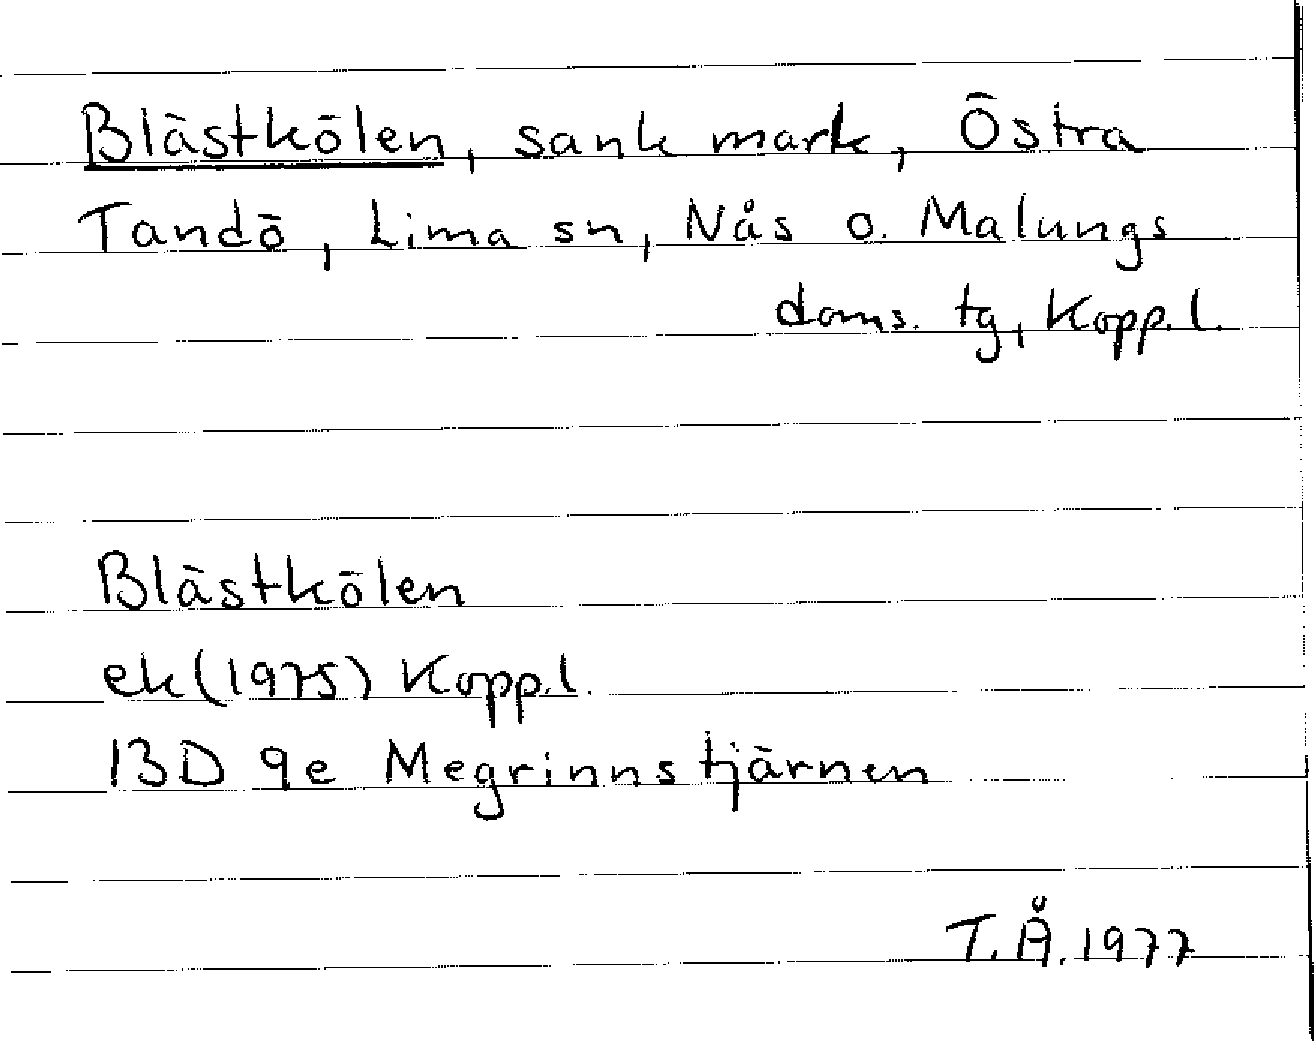 Blästkölen, sank mark, Östra
Tandö, Lima sn, Nås o. Malungs
doms. tg, Kopp.l.
Blästkölen
ek (1975) Kopp.l.
13D 9e Megrinnstjärnen
T.Å. 1977